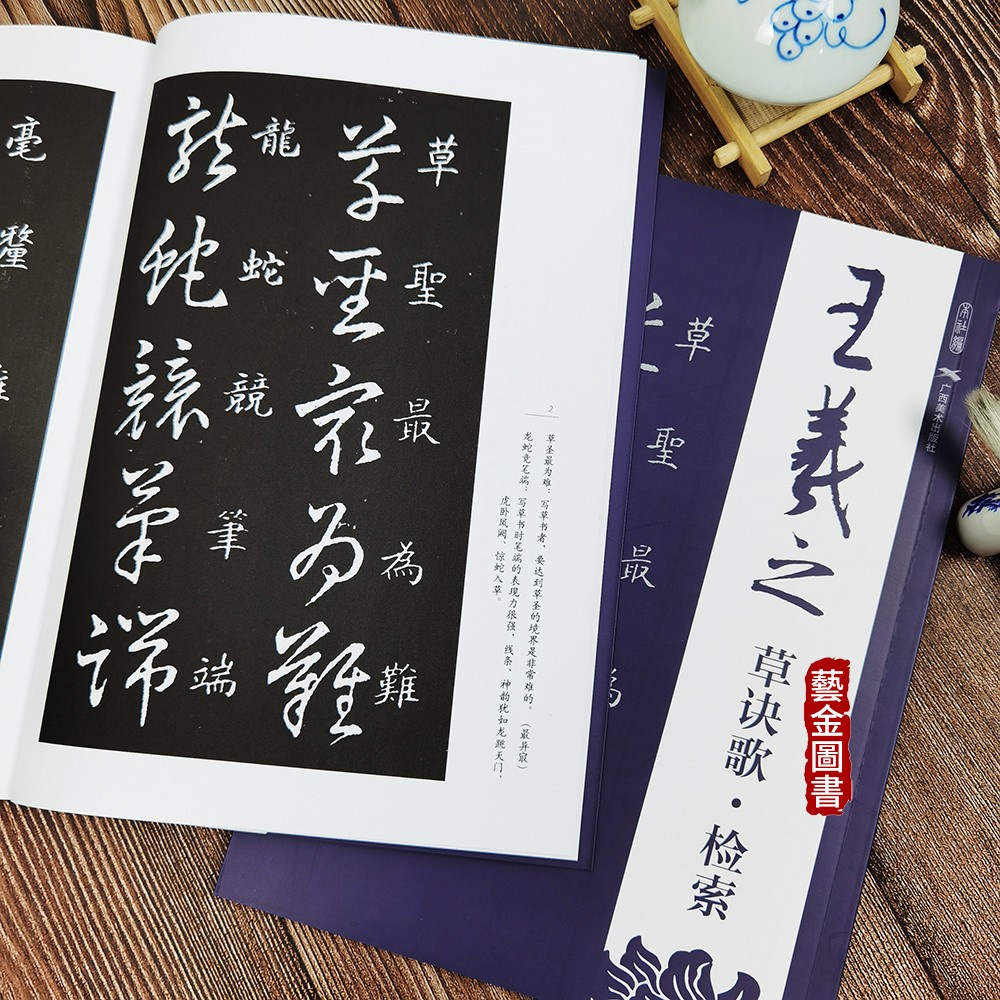 草聖最為難
龍蛇競筆端
毫釐
2
草圣最为难：写草书者，要达到草圣的境界是非常难的。（最异寂）
龙蛇竞笔端：写草书时笔端的表现力很强，线条、神韵犹如龙跳天门，
虎卧凤阙，惊蛇入草。
草聖最為
王羲之
草诀歌·检索
本社编
广西美术出版社
藝金圖書